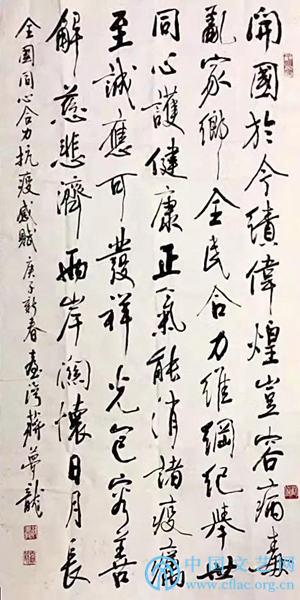 開國於今績偉煌豈容病毒
亂家鄉全民合力維綱紀舉世
同心護健康正氣能消諸疫癘
至誠應可發祥光包容善
解慈悲濟兩岸關懷日月長
全國同心合力抗疫感賦 庚子新春 臺灣蔣夢龍
中国文艺网
www.cflac.org.cn